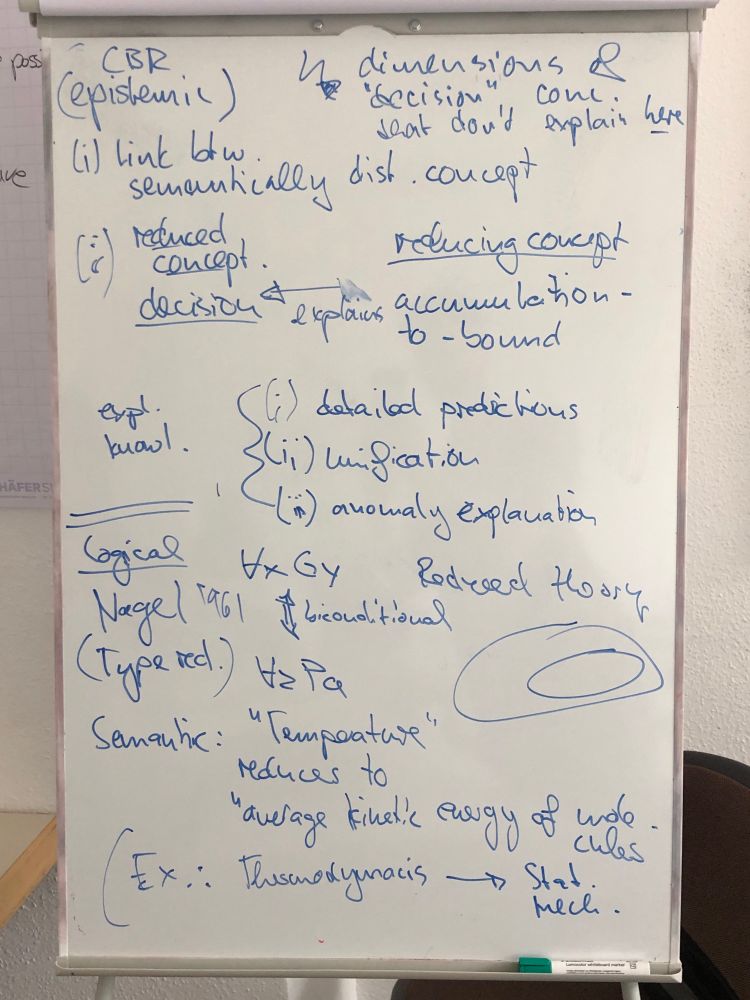 CBR
(epistemic)
↳ dimensions of
"decision", conc.
that don't explain here
(i) link btw.
semantically dist. concept
(ii) reduced
concept.
decision
reducing concept
explains
accumulation-
to-bound
expl.
knowl.
(i) detailed predictions
(ii) unification
(iii) anomaly explanation
Logical
Nagel 1961
(Type red.)
∀x Gy
↕ biconditional
∀z Pa
Reduced theory
Semantic: "Temperature"
reduces to
"average kinetic energy of mole.
cules
Ex.: Thermodymacis → Stat.
Mech.
possi
HÄFERS